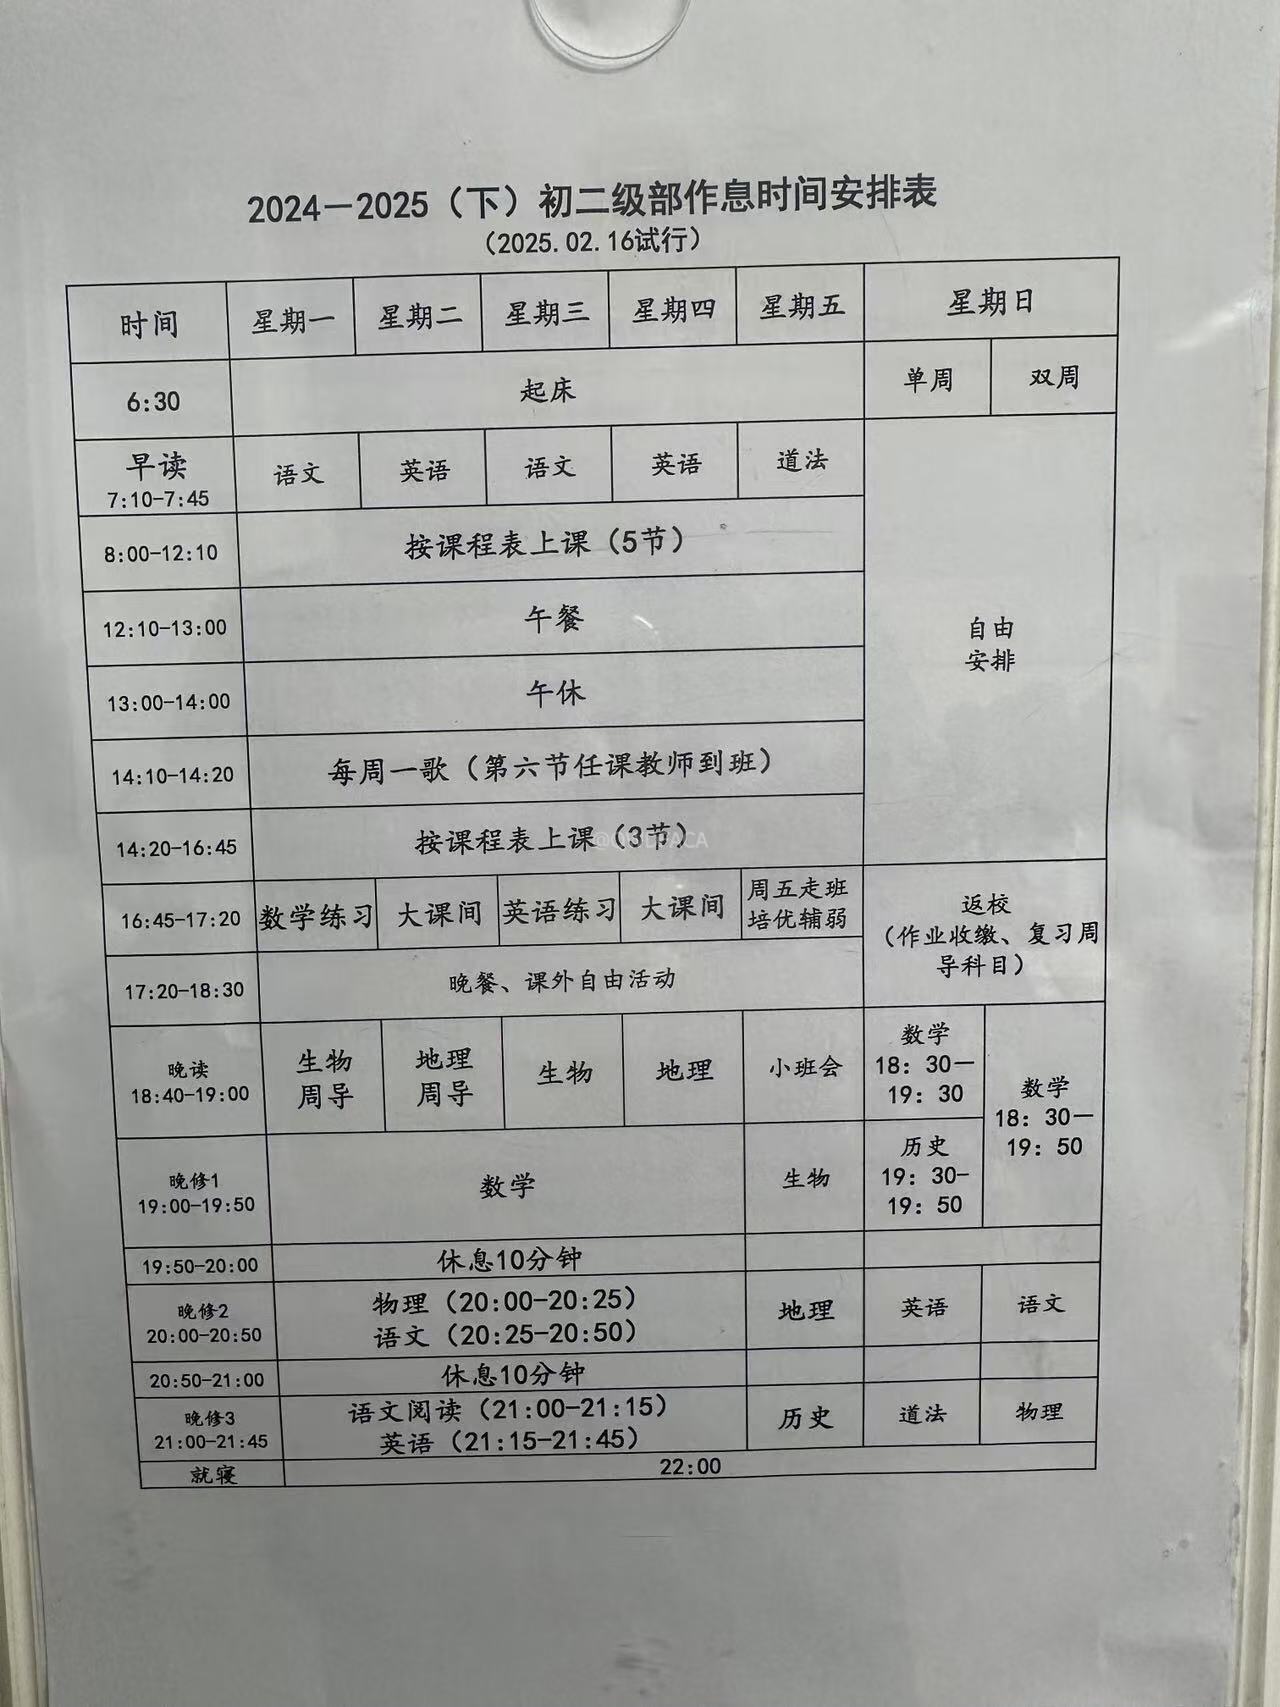 2024—2025（下）初二级部作息时间安排表
（2025.02.16试行）
时间 星期一 星期二 星期三 星期四 星期五 星期日
6:30 起床 单周 双周
早读
7:10-7:45 语文 英语 语文 英语 道法
8:00-12:10 按课程表上课（5节）
12:10-13:00 午餐
自由
安排
13:00-14:00 午休
14:10-14:20 每周一歌（第六节任课教师到班）
14:20-16:45 按课程表上课（3节）
16:45-17:20 数学练习 大课间 英语练习 大课间 周五走班
培优辅弱
返校
（作业收缴、复习周
导科目）
17:20-18:30 晚餐、课外自由活动
晚读
18:40-19:00
生物
周导
地理
周导
生物 地理 小班会
数学
18：30—
19：30
数学
18：30—
19：50
晚修1
19:00-19:50 数学 生物
历史
19：30-
19：50
19:50-20:00 休息10分钟
晚修2
20:00-20:50
物理（20:00-20:25）
语文（20:25-20:50）
地理 英语 语文
20:50-21:00 休息10分钟
晚修3
21:00-21:45
语文阅读（21:00-21:15）
英语（21:15-21:45）
历史 道法 物理
就寝 22:00